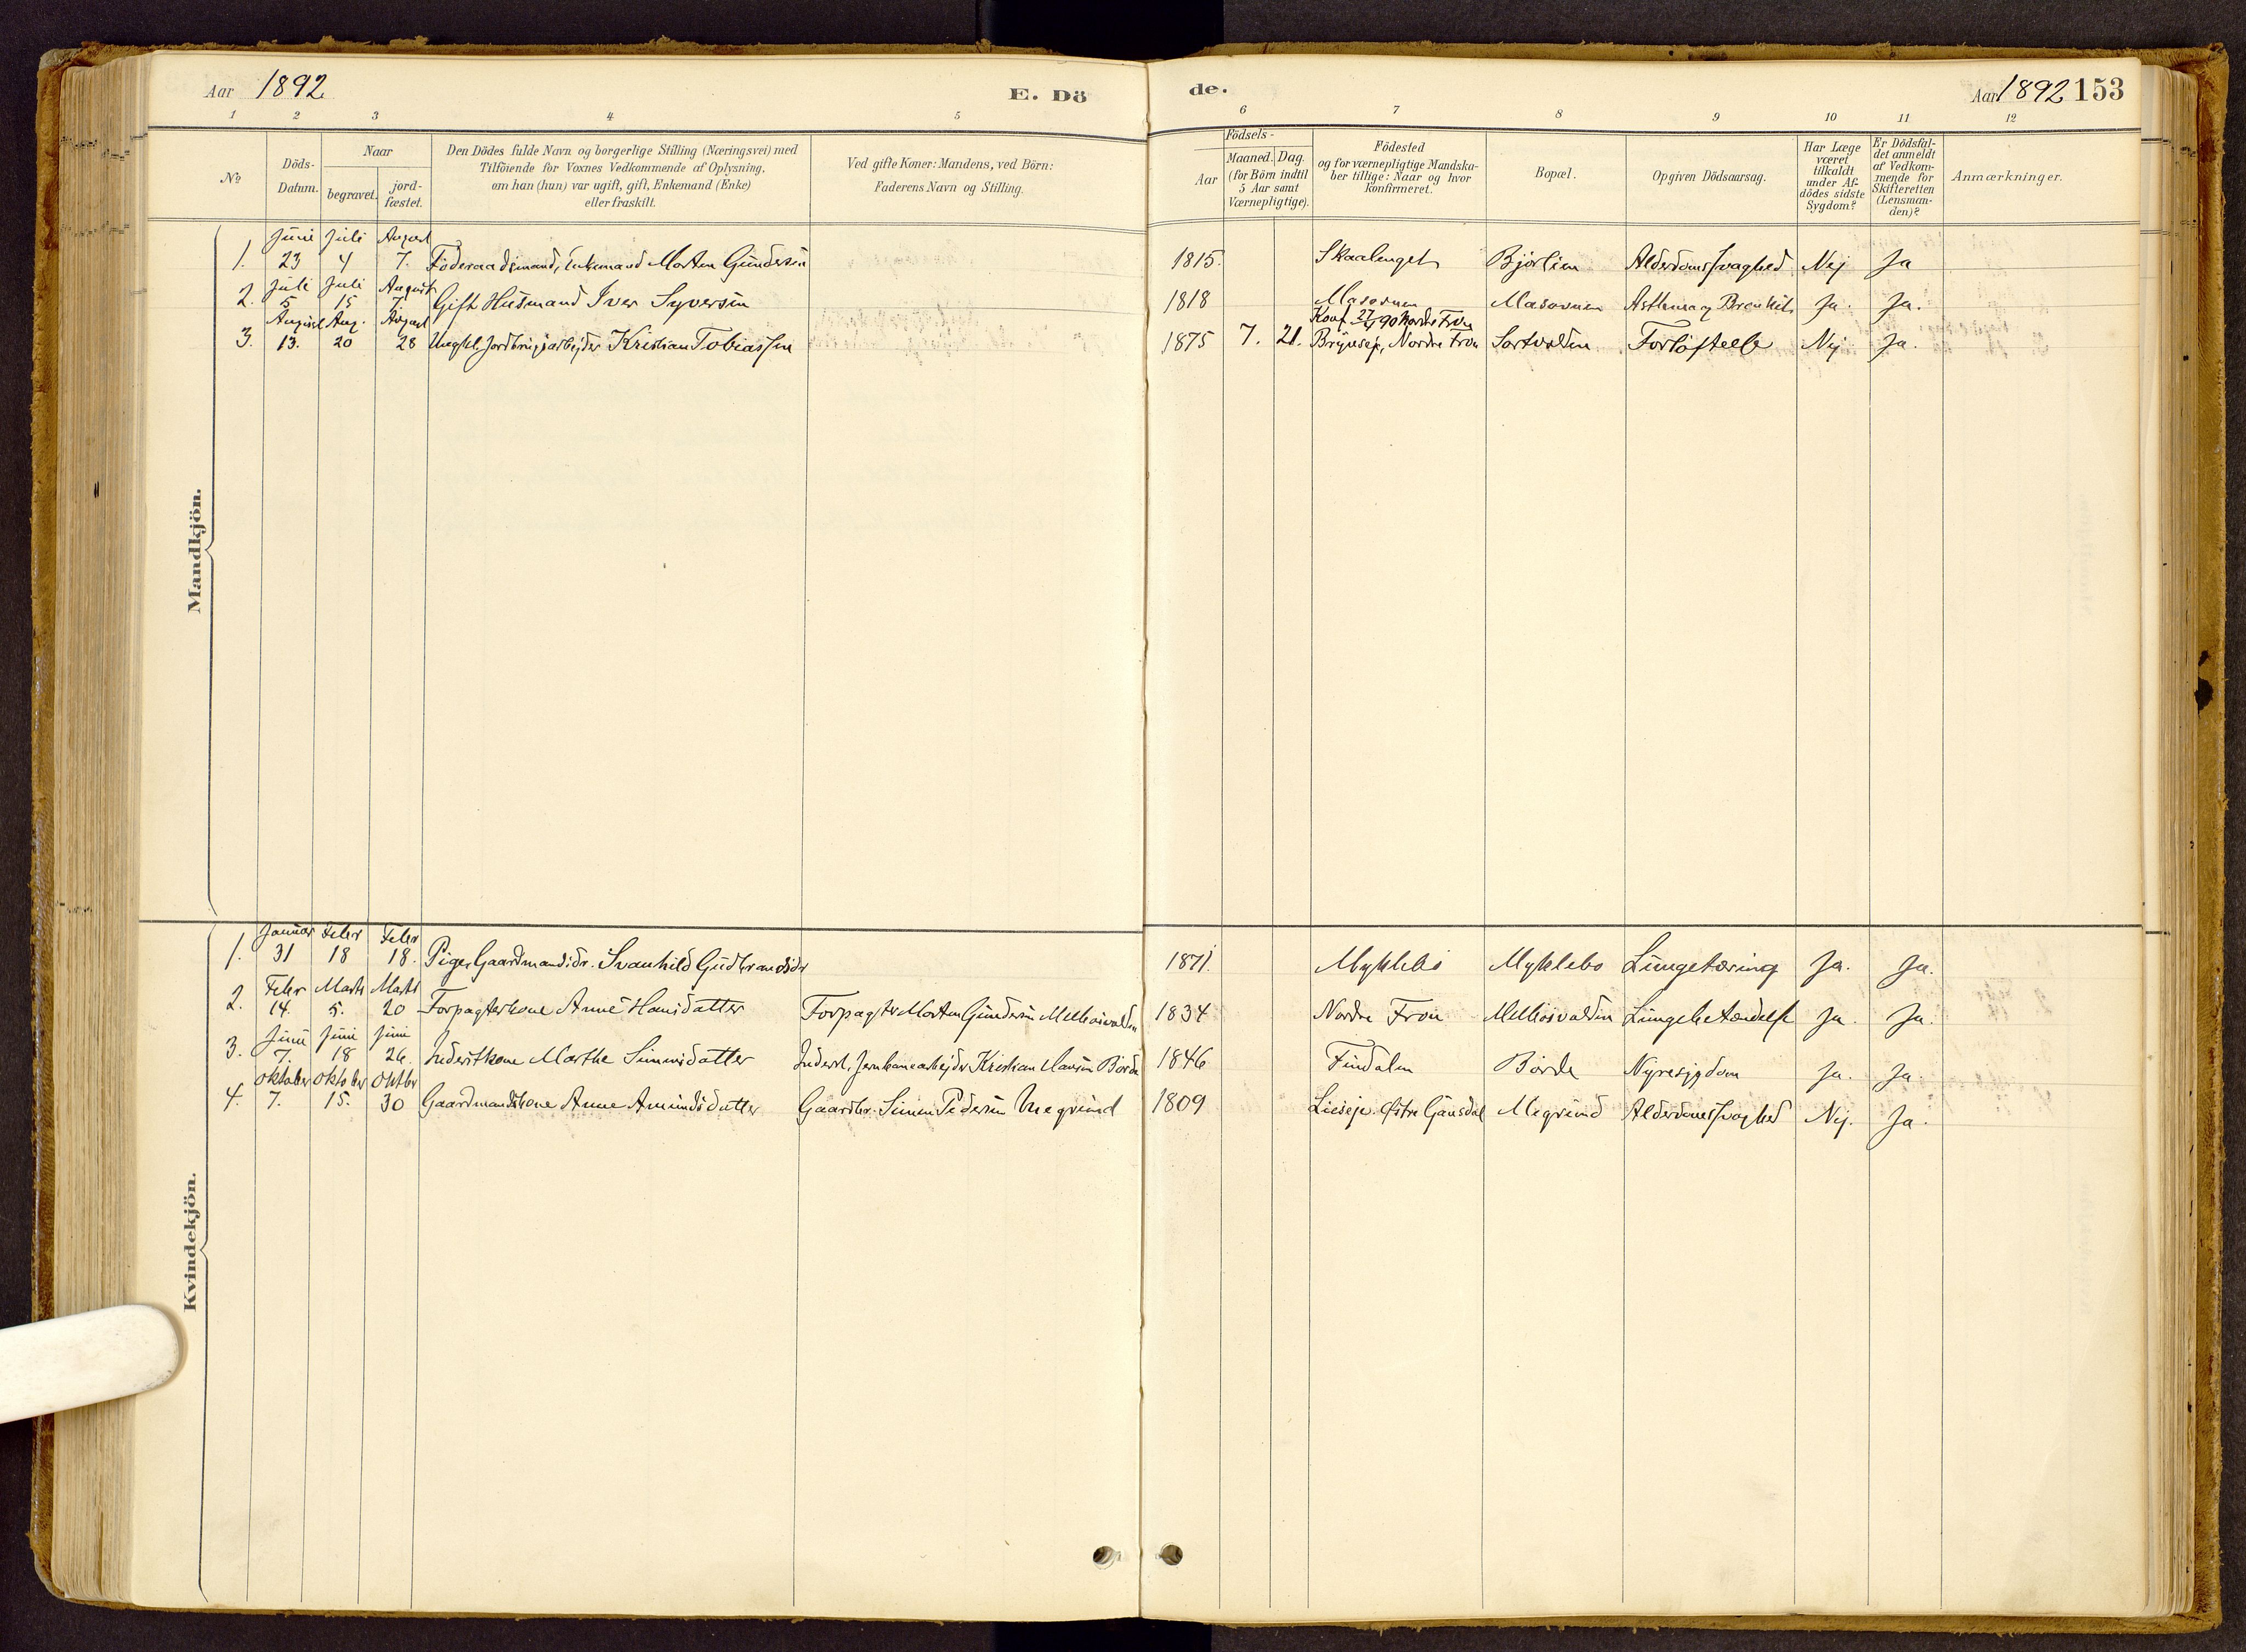 Aar 1892 E. Dö de. Aar 1892 153
1 2 3 4 5 6 7 8 9 10 11 12
No
Döds-Datum.
Naar
begravet.
jord-fæstet.
Den Dödes fulde Navn og borgerlige Stilling (Næringsvei) med
Tilföiende for Voxnes Vedkommende af Oplysning,
om han (hun) var ugift, gift, Enkemand (Enke)
eller fraskilt.
Ved gifte Koner: Mandens, ved Börn:
Faderens Navn og Stilling.
Födsels-
Aar
Maaned. Dag.
(for Börn indtil
5 Aar samt
Værnepligtige).
Födested
og for værnepligtige Mandska-
ber tillige: Naar og hvor
konfirmeret.
Bopæl.
Opgiven Dödsaarsag.
Har Læge
været
tilkaldt
under Af-
dödes sidste
Sygdom?
Er Dödsfal-
det anmeldt
af Vedkom-
mende for
Skifteretten
(Lensman-
den)?
Anmærkninger.
Mandkjön.
Juni Juli August
1. 23 4 7. Föderaadsmand, Enkemand Morten Gundersen 1815. Skaalenget Bjørlien Alderdomssvaghed Nej Ja
Juli Juli August
2. 5 15 7. Gift Husmand Iver Syversen 1818 Masovnen Masovnen Asthma og Bronkit. Ja. Ja.
August Aug. August Konf. 27/4 90 Nordre Fron
3. 13. 20 28 Ungkl. Jordbrugsarbejder Kristian Tobiassen 1875 7. 21. Bryneseje, Nordre Fron Sortvolden Forløftelse Nej Ja.
Kvindekjön.
Januar Febr Febr
1. 31 18 18. Pige, Gaardmandsdr. Svanhild Gudbrandsdr 1871. Myklebö Myklebo Lungetæring Ja. Ja.
Febr Marts Marts
2. 14. 5. 20 Forpagterkone Anne Hansdatter Forpagter Morten Gundersen Melbøsvolden 1834 Nordre Fron Melbøsvolden Lungebetændelse Ja. Ja.
Juni Juni Juni
3. 7. 18 26. Inderstkone Marthe Simensdatter Inderst, Jernbanearbejder Kristian Hansen Börde 1846 Findalen Börde Nyresygdom Ja. Ja.
Oktober Oktober Oktbr
4. 7. 15. 30 Gaardmandskone Anne Amundsdatter Gaardbr. Simen Pedersen Megrund 1809 Lieseje Østre Gausdal Megrund Alderdomssvaghed Nej. Ja.